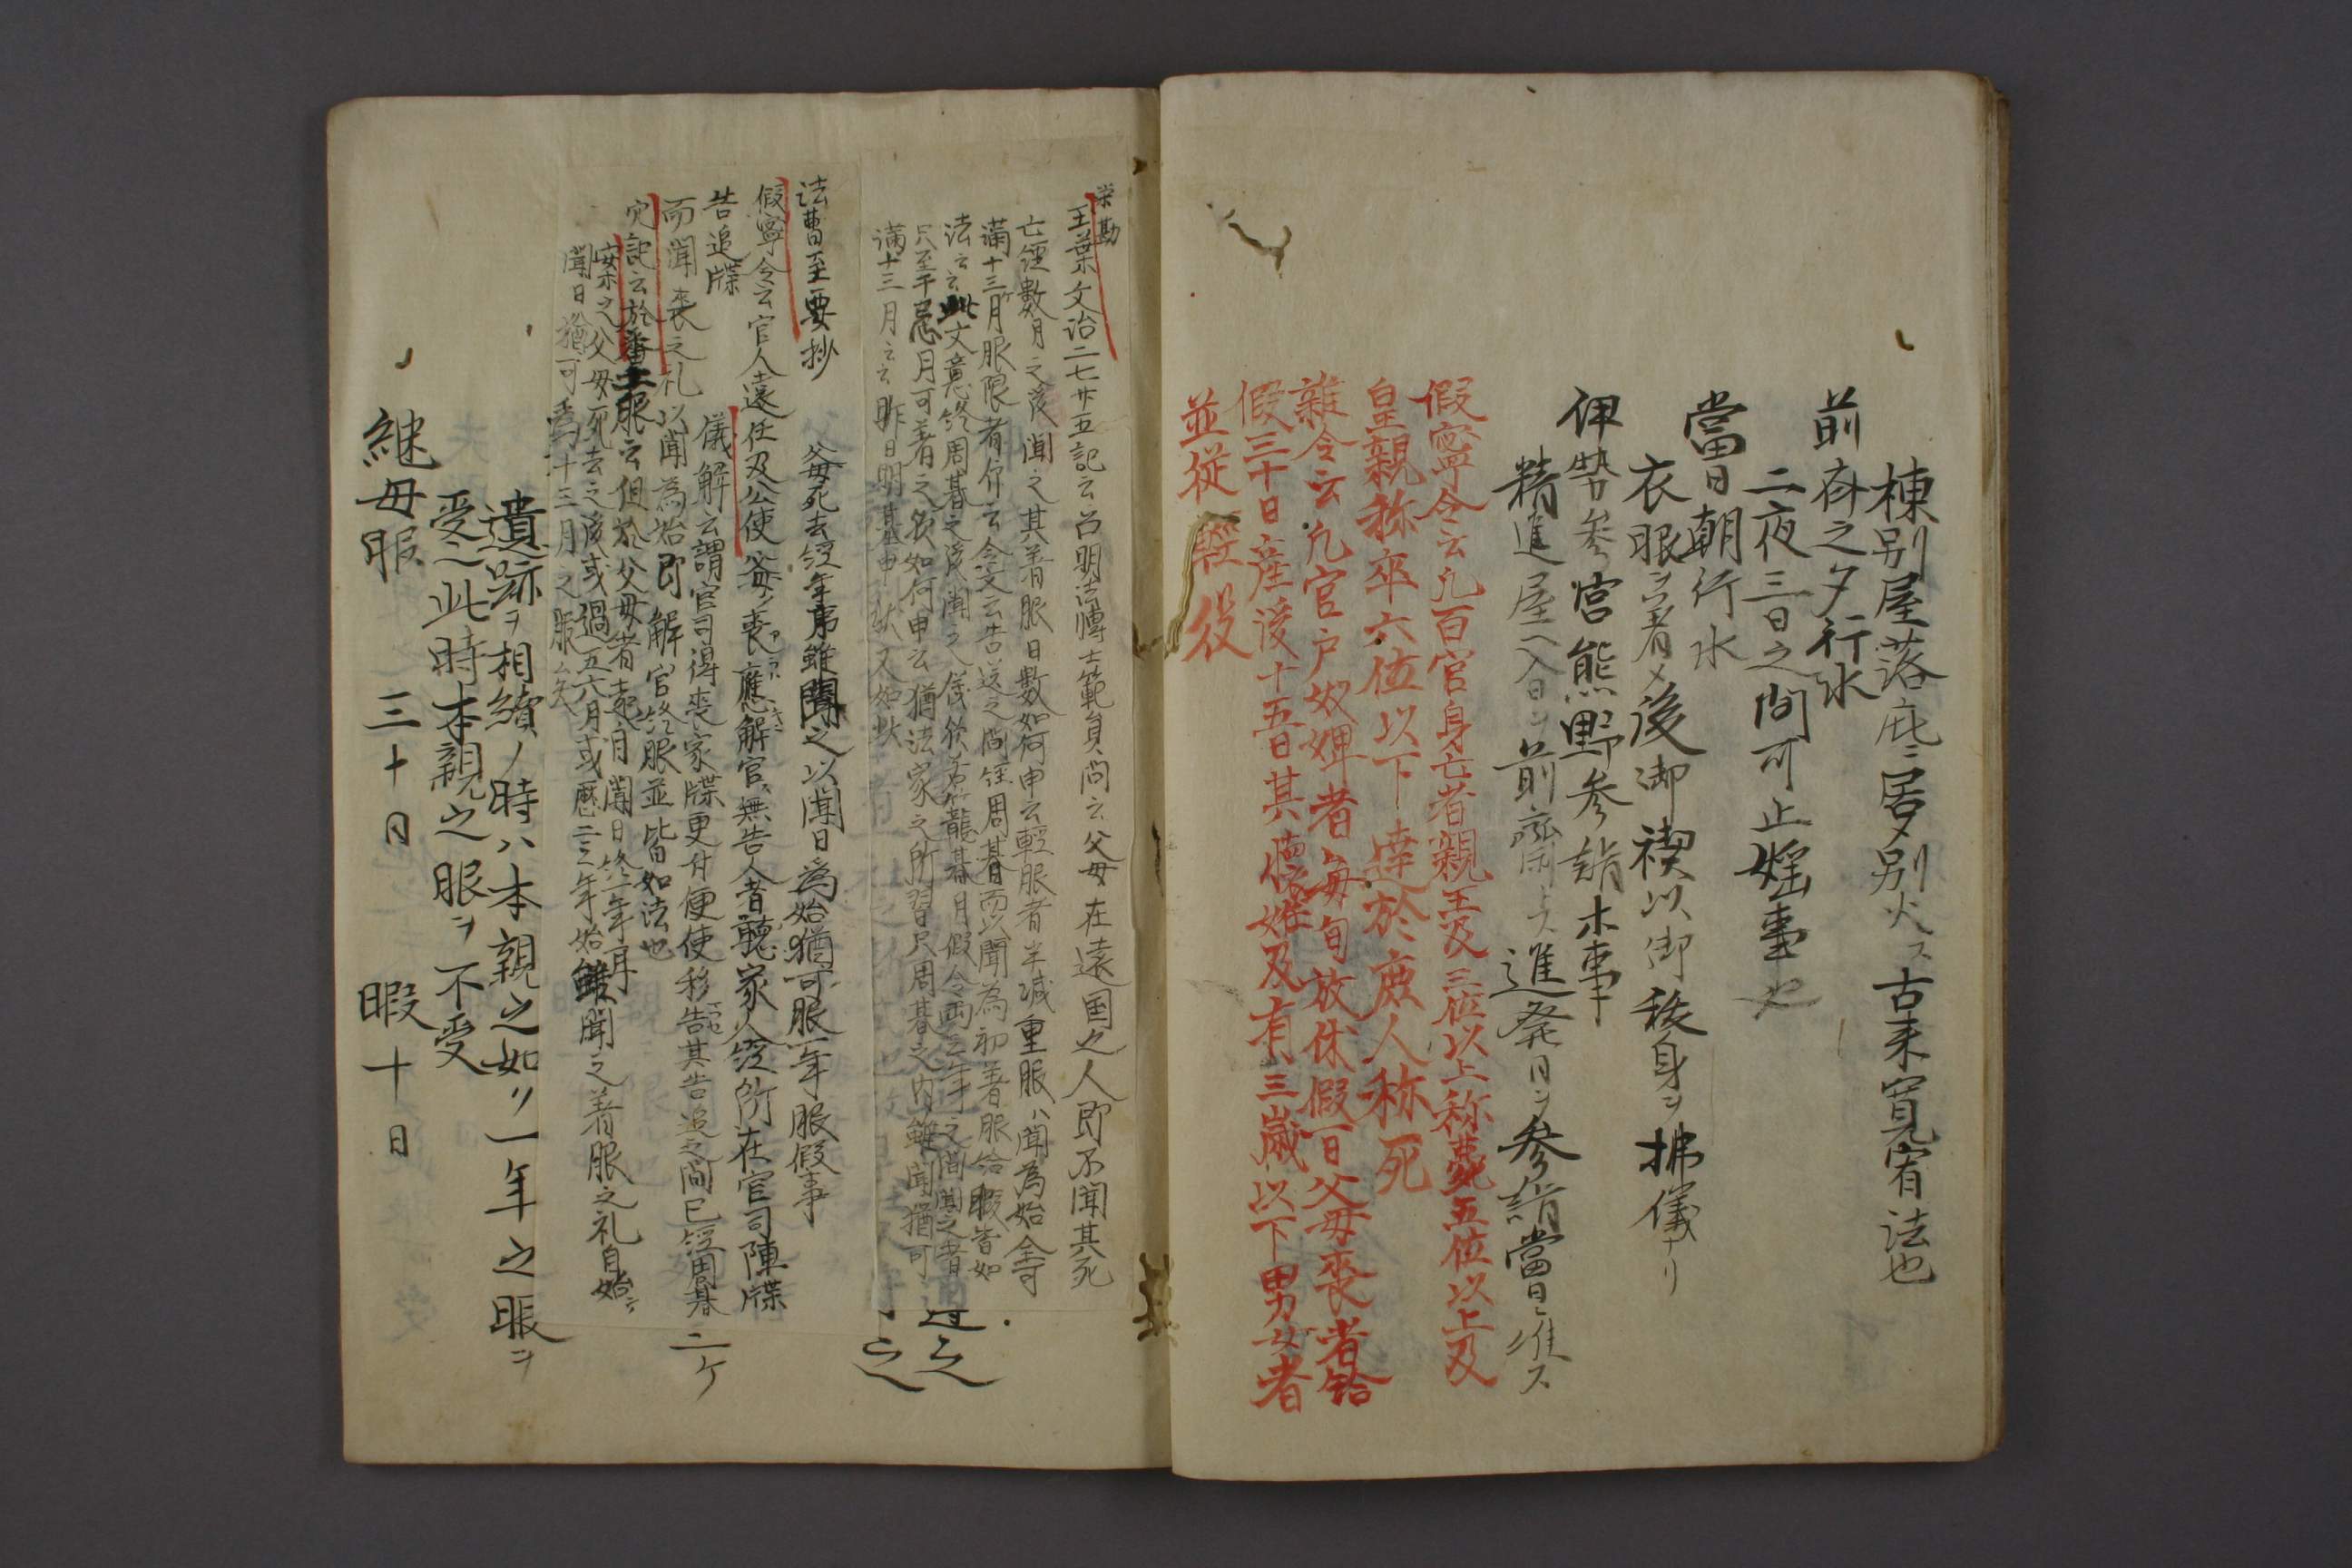 棟別屋落庇ニ居メ別火ス古来寛宥法也
前斎之夕行水
二夜三日之間可止婬事也
當日朝行水
衣服ヲ着メ後御禊以御秡身ヲ拂儀ナリ
伊勢参宮熊野参詣木事
精進屋入日ヲ前齋トス進発日ヲ参詣當日ニ准ス
假寧令云凡百官身亡者親王及三位以上称薨五位以上及
皇親称卒六位以下達於庶人称死
雜令云凡官戸奴婢者毎旬放休假一日父母喪者給
假三十日産後十五日其懐妊及有三歳以下男女者
並從軽役
業勘
玉葉文治二七廿五記云召明法博士範貞問云父母在遠国之人即不聞其死
亡經數月之後聞之其着服日數如何申云輕服者半減重服ハ聞為始全可
満十三ケ月服限者
法云云此文意終周碁之後聞之
只至于忌月可着之欤如何申云猶法家之所習只周碁之内雖聞猶可
満十三月云云昨日明基申状又如此
过之
之
法曹至要抄
父母死去経年序雖聞之以聞日為始猶可服一年服假事
假寧令云官人遠任及公使父母喪應解官無告人者聽家人経所在官司陳牒
告追牒
儀解云謂官司得喪家牒更付便使移告其告追之間已経周碁
二ケ
而聞喪之礼以聞為始即解官終服並皆如法也
穴記云於番上服云但於父母者喪月聞日終一年序
案之父母死去之後或過五六月或歴二三年始雖聞之着服之礼自始
聞日猶可為十三月之服矣
遺跡ヲ相續ノ時ハ本親之如ク一年之服ヲ
受之此時本親之服ヲ不受
継母服　三十日　暇十日